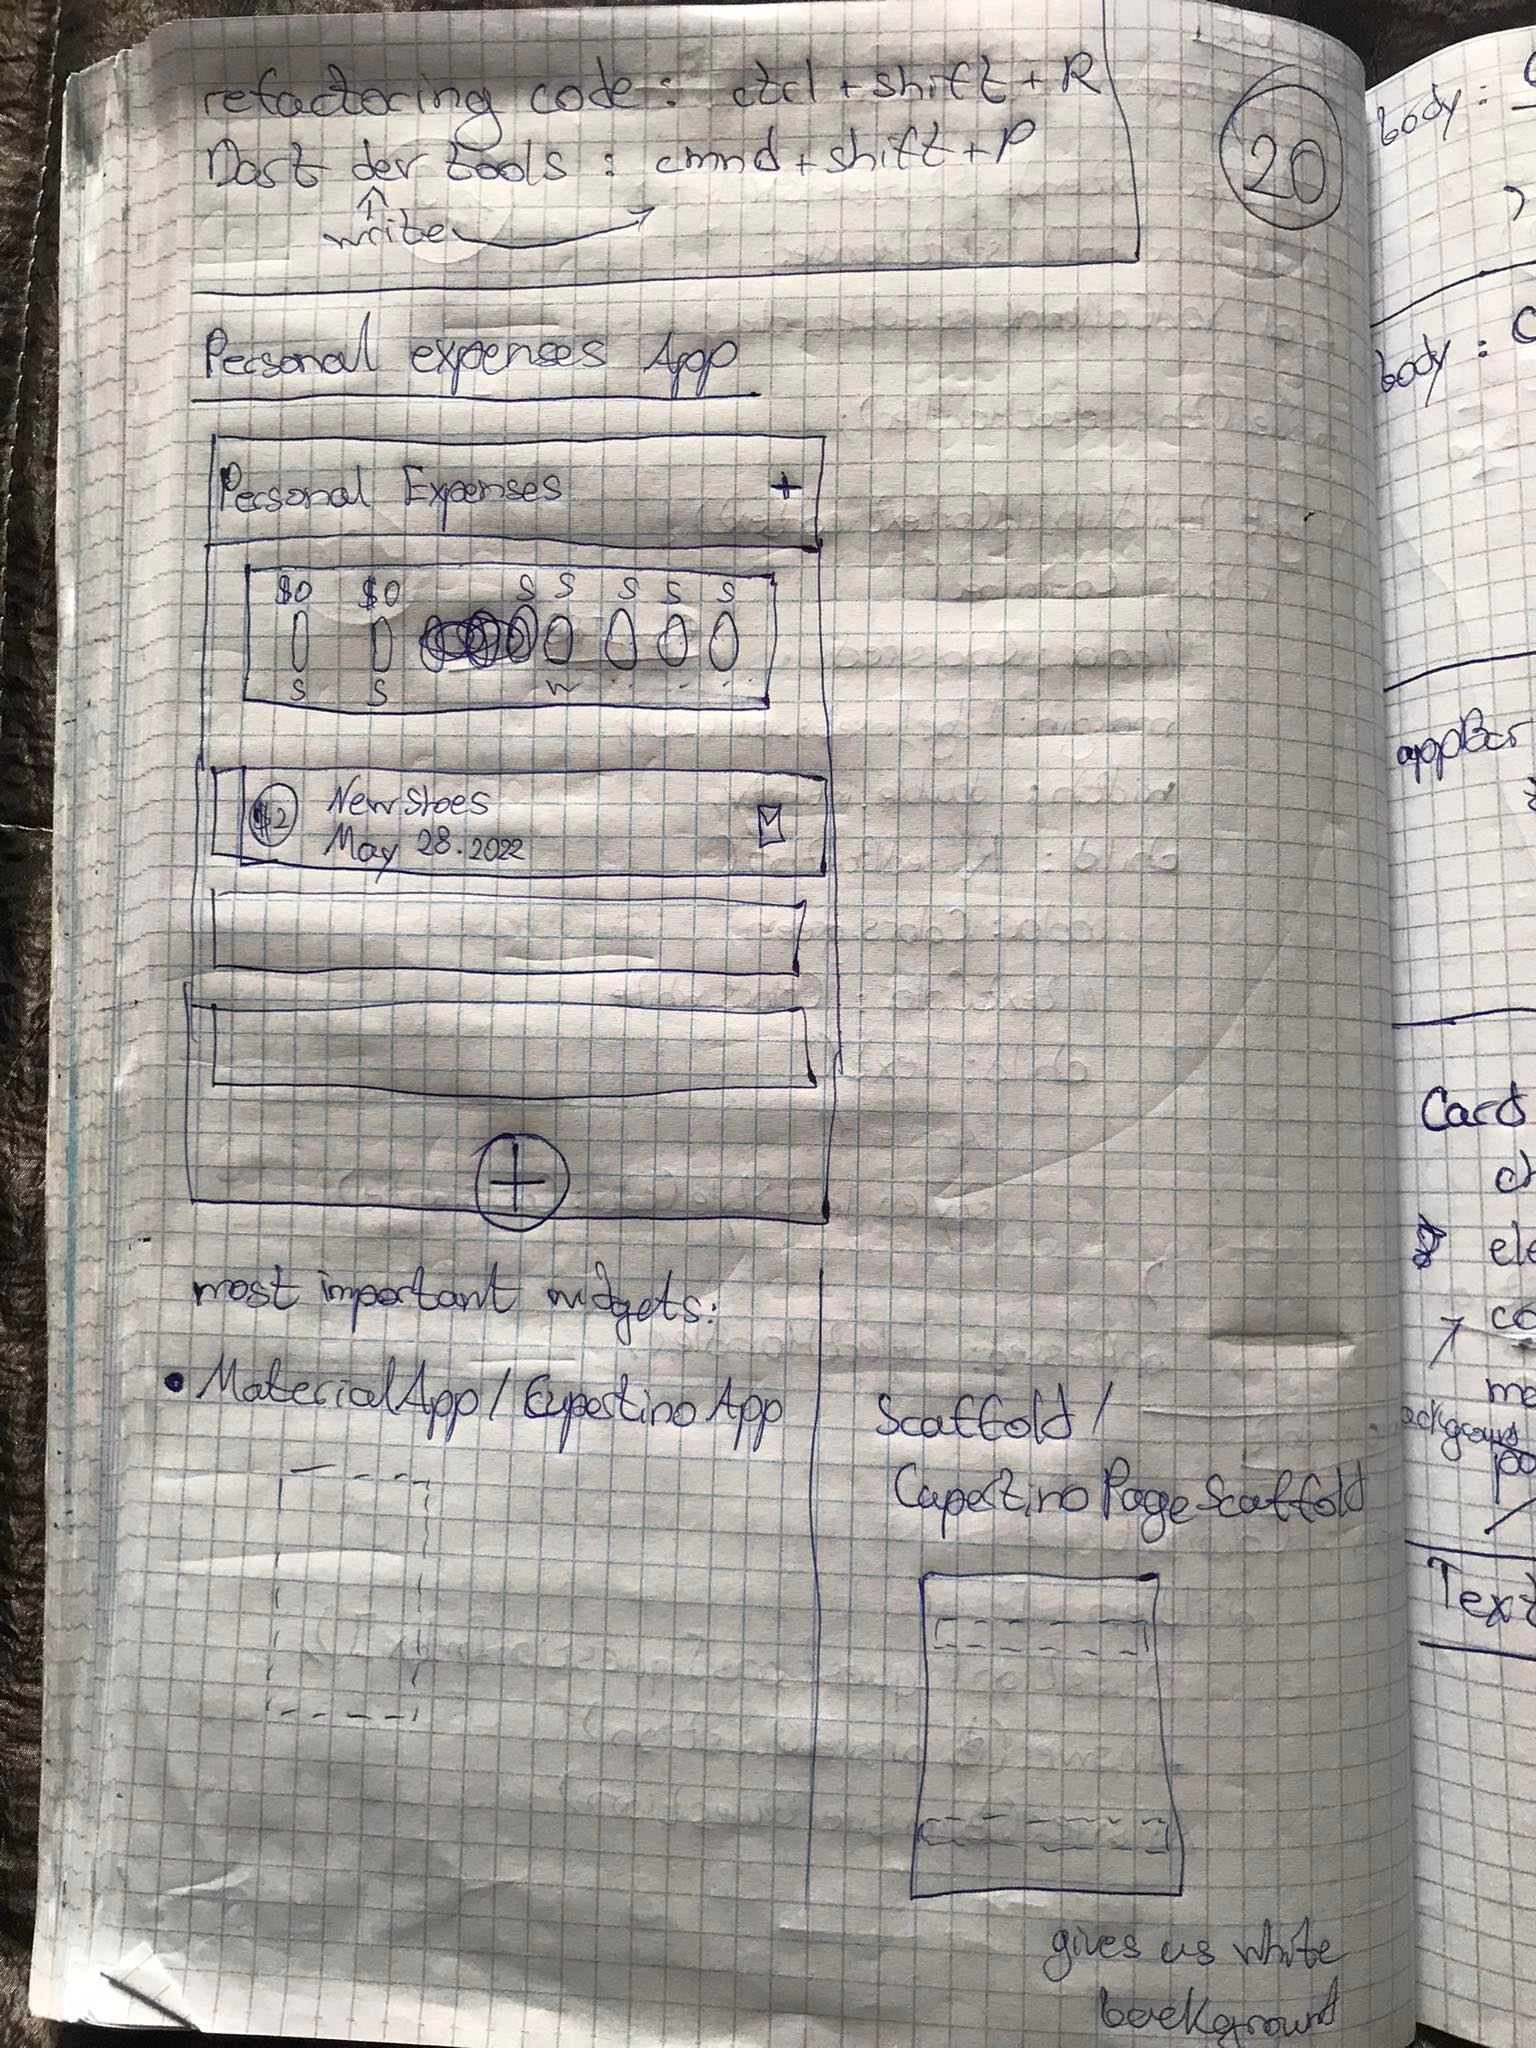 refactoring code: ctrl + shift + R
Dart dev tools : cmnd + shift + P
write
20
Personal expenses App
Personal Expenses +
$0 $0 S S S S S
S S W
$2 New Shoes
May 28.2022
+
most important widgets:
• MaterialApp / Cupertino App
Scaffold /
Cupertino Page Scaffold
gives us white
background
body :
body :
appBar
Card
Text